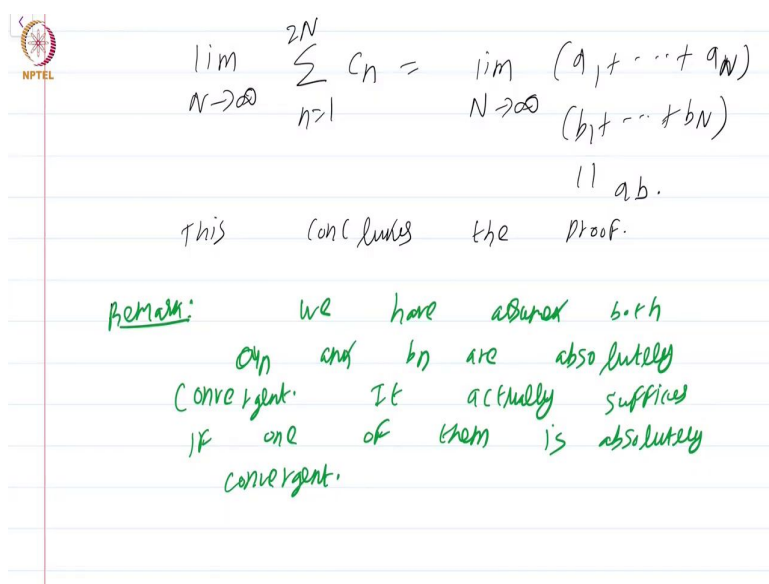 NPTEL
lim_{N→∞} ∑_{n=1}^{2N} c_n = lim_{N→∞} (a_1 + ... + a_N)
(b_1 + ... + b_N)
|| ab.
This concludes the proof.
Remark: we have assumed both
a_n and b_n are absolutely
convergent. It actually suffices
if one of them is absolutely
convergent.